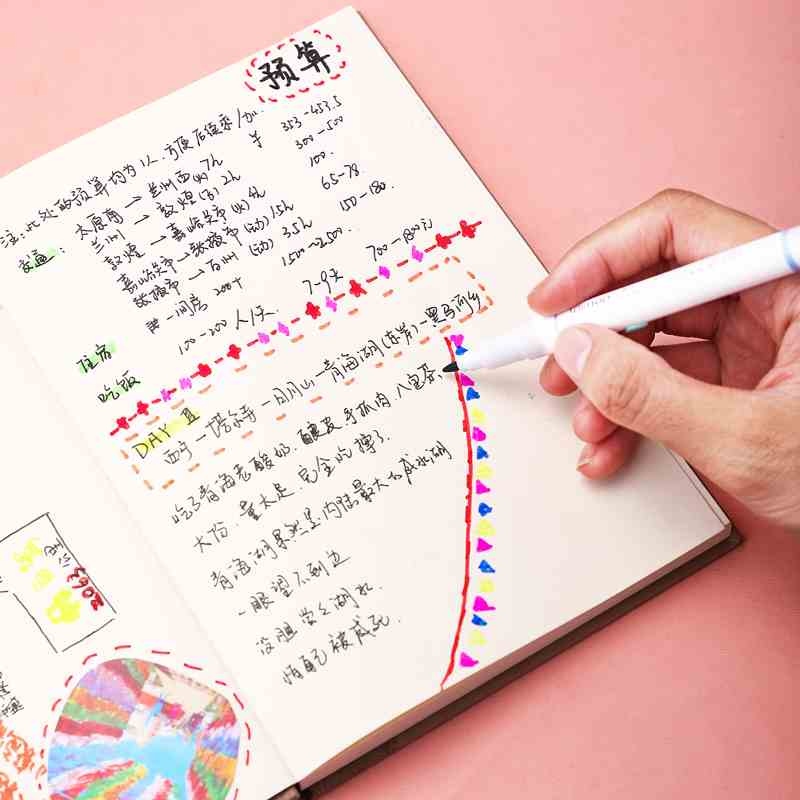 预算
注:此处的预算均为1人.方便后续乘/加.
交通: 太原南→兰州西(火)7h 353-453.5
兰州→敦煌(火)2h 300-500
敦煌→嘉峪关市(火) 100.
嘉峪关市→张掖市(动)1.5h 65-78
张掖市→西州(动)3.5h 150-180.
住宿 一间房 200+ 1500-2500.
吃饭 100-200 人/天. 7-9天 700-1800元
DAY 1
西宁-塔尔寺-日月山-青海湖(东岸)-黑马河乡
吃了青海老酸奶.酿皮 手抓肉 八宝茶、
大份.量太足.完全吃撑了.
青海湖果然是内陆最大的咸水湖
一眼望不到边
没胆尝尝湖水.
怕自己被咸死.